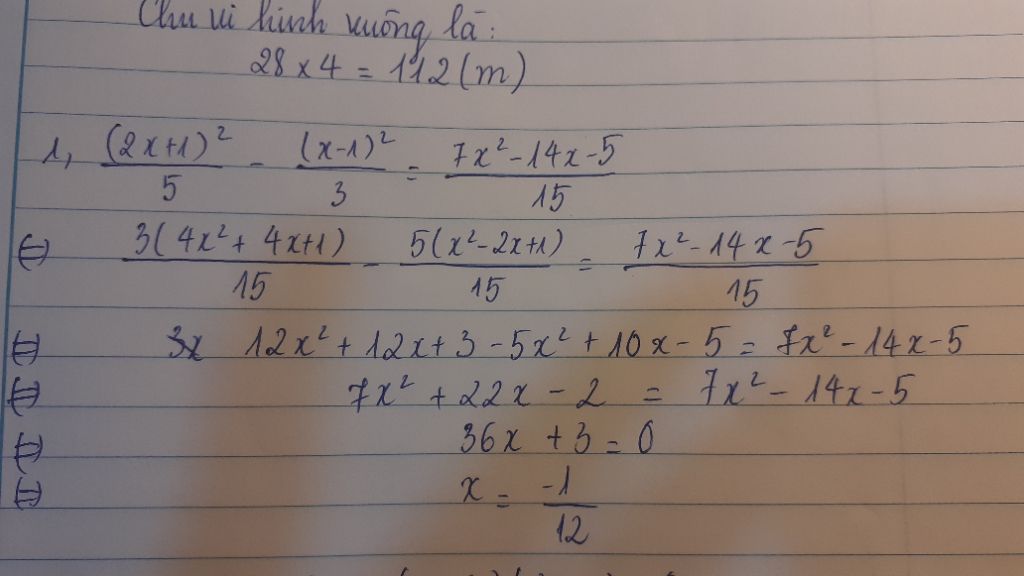 Chu vi hình vuông là:
28 x 4 = 112 (m)
1, (2x+1)²/5 - (x-1)²/3 = 7x²-14x-5/15
⇔ 3(4x²+4x+1)/15 - 5(x²-2x+1)/15 = 7x²-14x-5/15
⇔ 12x²+12x+3-5x²+10x-5 = 7x²-14x-5
⇔ 7x²+22x-2 = 7x²-14x-5
⇔ 36x+3=0
⇔ x = -1/12